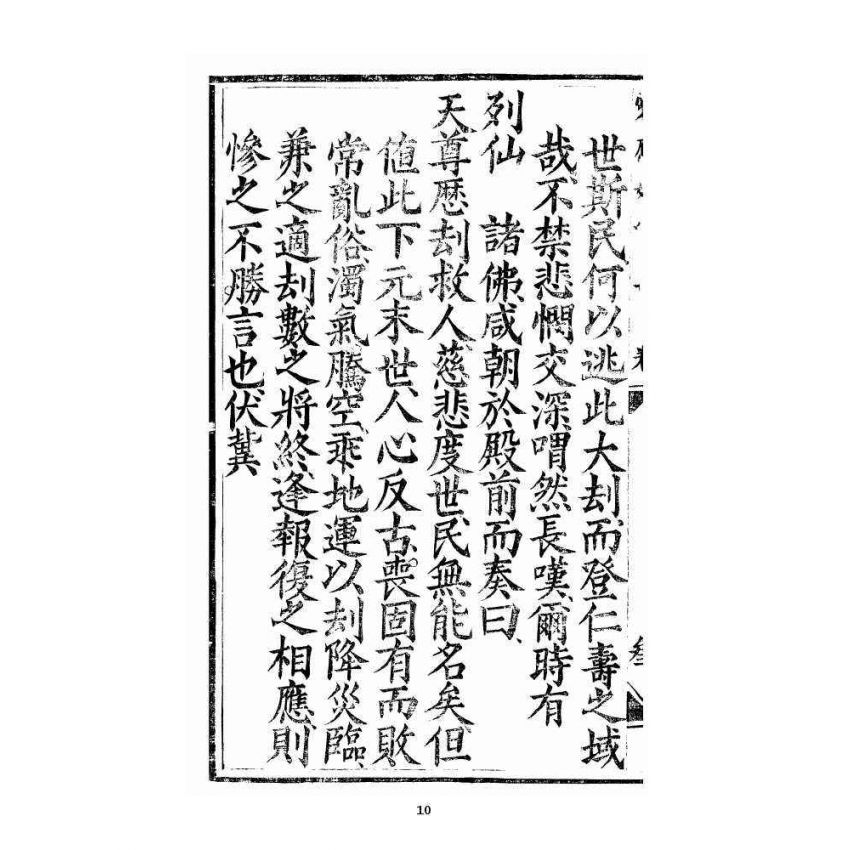 世斯民何以逃此大刦而登仁壽之域
哉不禁悲憫交深喟然長嘆爾時有
列仙 諸佛咸朝於殿前而奏曰
天尊歷刦救人慈悲度世民無能名矣但
值此下元末世人心反古喪固有而敗
常亂俗濁氣騰空乖地運以刦降災臨
兼之適刦數之將終逢報復之相應則
慘之不勝言也伏冀
10